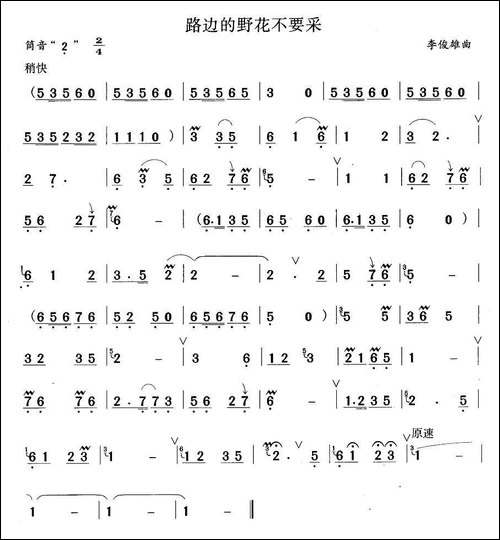 路边的野花不要采
筒音“2” 2/4 李俊雄曲
稍快
(53560 | 53560 | 53565 | 3 0 | 53560 | 53560 |
535232 | 1110) | 3 35 | 6 1 6 | 1 2 | 3 2. |
2 7. | 6 3 5 | 62 76 | 5 - | 1 1 | 62 76 |
56 27 | 6 - | (6.135 | 65 60 | 6.135 | 6 0) |
6 1 2 | 3.5 2 | 2 - | 2. 2 | 5 76 | 5 - |
(65676 | 52 50 | 65676 | 5 0) | 5 5 | 36 5 |
32 35 | 2 - | 3 6 | 12 3 | 2165 | 1 - |
76 76 | 2.773 | 5627 | 6 - | 1.235 | 2 - |
61 23 | 1 - | 6 12 35 | 2. 5 | 61 23 | 原速 1 - |
1 - | 1 - | 1 - ‖